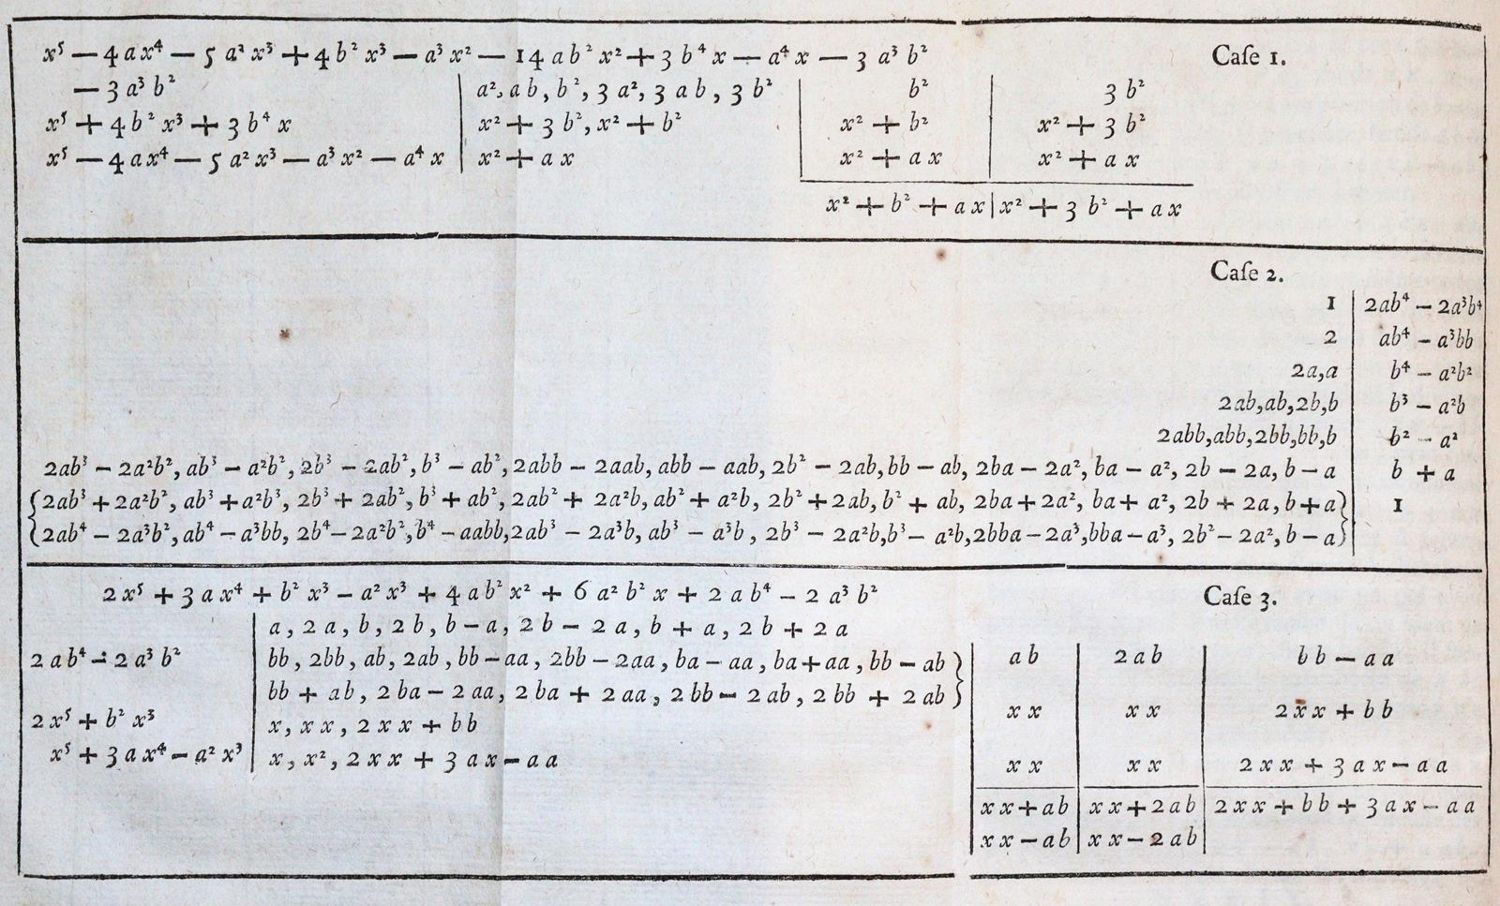 x⁵ — 4 a x⁴ — 5 a² x³ + 4 b² x³ — a³ x² — 14 a b² x² + 3 b⁴ x — a⁴ x — 3 a³ b² Caſe 1.
— 3 a³ b² | a², a b, b², 3 a², 3 a b, 3 b² | b² | 3 b²
x⁵ + 4 b² x³ + 3 b⁴ x | x² + 3 b², x² + b² | x² + b² | x² + 3 b²
x⁵ — 4 a x⁴ — 5 a² x³ — a³ x² — a⁴ x | x² + a x | x² + a x | x² + a x
x² + b² + a x | x² + 3 b² + a x
Caſe 2.
1 | 2ab⁴ – 2a³b⁴
2 | ab⁴ – a³bb
2a,a | b⁴ – a²b²
2ab,ab,2b,b | b³ – a²b
2abb,abb,2bb,bb,b | b² – a²
2ab³ – 2a²b², ab³ – a²b², 2b³ – 2ab², b³ – ab², 2abb – 2aab, abb – aab, 2b² – 2ab, bb – ab, 2ba – 2a², ba – a², 2b – 2a, b – a | b + a
{2ab³ + 2a²b², ab³ + a²b³, 2b³ + 2ab², b³ + ab², 2ab² + 2a²b, ab² + a²b, 2b² + 2ab, b² + ab, 2ba + 2a², ba + a², 2b + 2a, b + a} | 1
{2ab⁴ – 2a³b², ab⁴ – a³bb, 2b⁴ – 2a²b², b⁴ – aabb, 2ab³ – 2a³b, ab³ – a³b, 2b³ – 2a²b, b³ – a²b, 2bba – 2a³, bba – a³, 2b² – 2a², b – a}
2 x⁵ + 3 a x⁴ + b² x³ – a² x³ + 4 a b² x² + 6 a² b² x + 2 a b⁴ – 2 a³ b² Caſe 3.
a, 2 a, b, 2 b, b – a, 2 b – 2 a, b + a, 2 b + 2 a
2 ab⁴ – 2 a³ b² | bb, 2bb, ab, 2ab, bb – aa, 2bb – 2aa, ba – aa, ba + aa, bb – ab} | a b | 2 a b | bb — a a
bb + ab, 2 ba – 2 aa, 2 ba + 2 aa, 2 bb – 2 ab, 2 bb + 2 ab}
2 x⁵ + b² x³ | x, x x, 2 x x + b b | x x | x x | 2 x x + b b
x⁵ + 3 a x⁴ – a² x³ | x, x², 2 x x + 3 a x – a a | x x | x x | 2 x x + 3 a x – a a
x x + ab | x x + 2 ab | 2 x x + b b + 3 a x – a a
x x – ab | x x – 2 ab